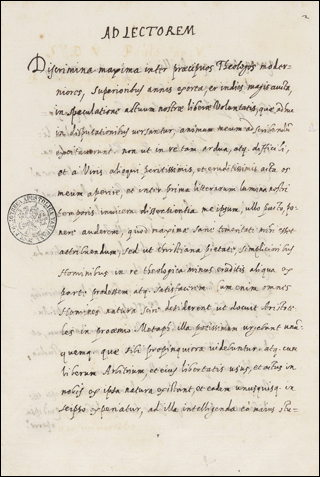 AD LECTOREM
Discrimina maxima inter præcipuos Theologos moder-
niores, superioribus annis exorta, et in dies magis aucta,
in speculatione actuum nostræ liberæ voluntatis, quæ adhuc
in disputationibus versantur, animum meum ad scribendum
excitaverunt. non ut in re tam ardua, atq. difficili,
et a Viris alioqui peritissimis, et eruditissimis acta os
meum aperire, et inter prima litterarum lumina nostri
temporis invicem dissentientia me ipsum, ullo pacto, po-
nere auderem, quod maxima sane temeritati mihi esset
attribuendum, sed ut christiana pietate, simplicioribus
hominibus in re theologica minus eruditis aliqua ex
parte prodessem atq. satisfacerem. Cum enim omnes
homines natura scire desiderent ut docuit Aristote-
les in proœmio Metaph. illa potissimum
quemq. quæ sibi propinquiora videbuntur. atq. cum
liberum Arbitrium, et eius libertatis usus, et actus in
nobis ex ipsa natura existant, et eadem unusquisq. in
seipso experiatur, ad illa intelligenda eo maius stu-